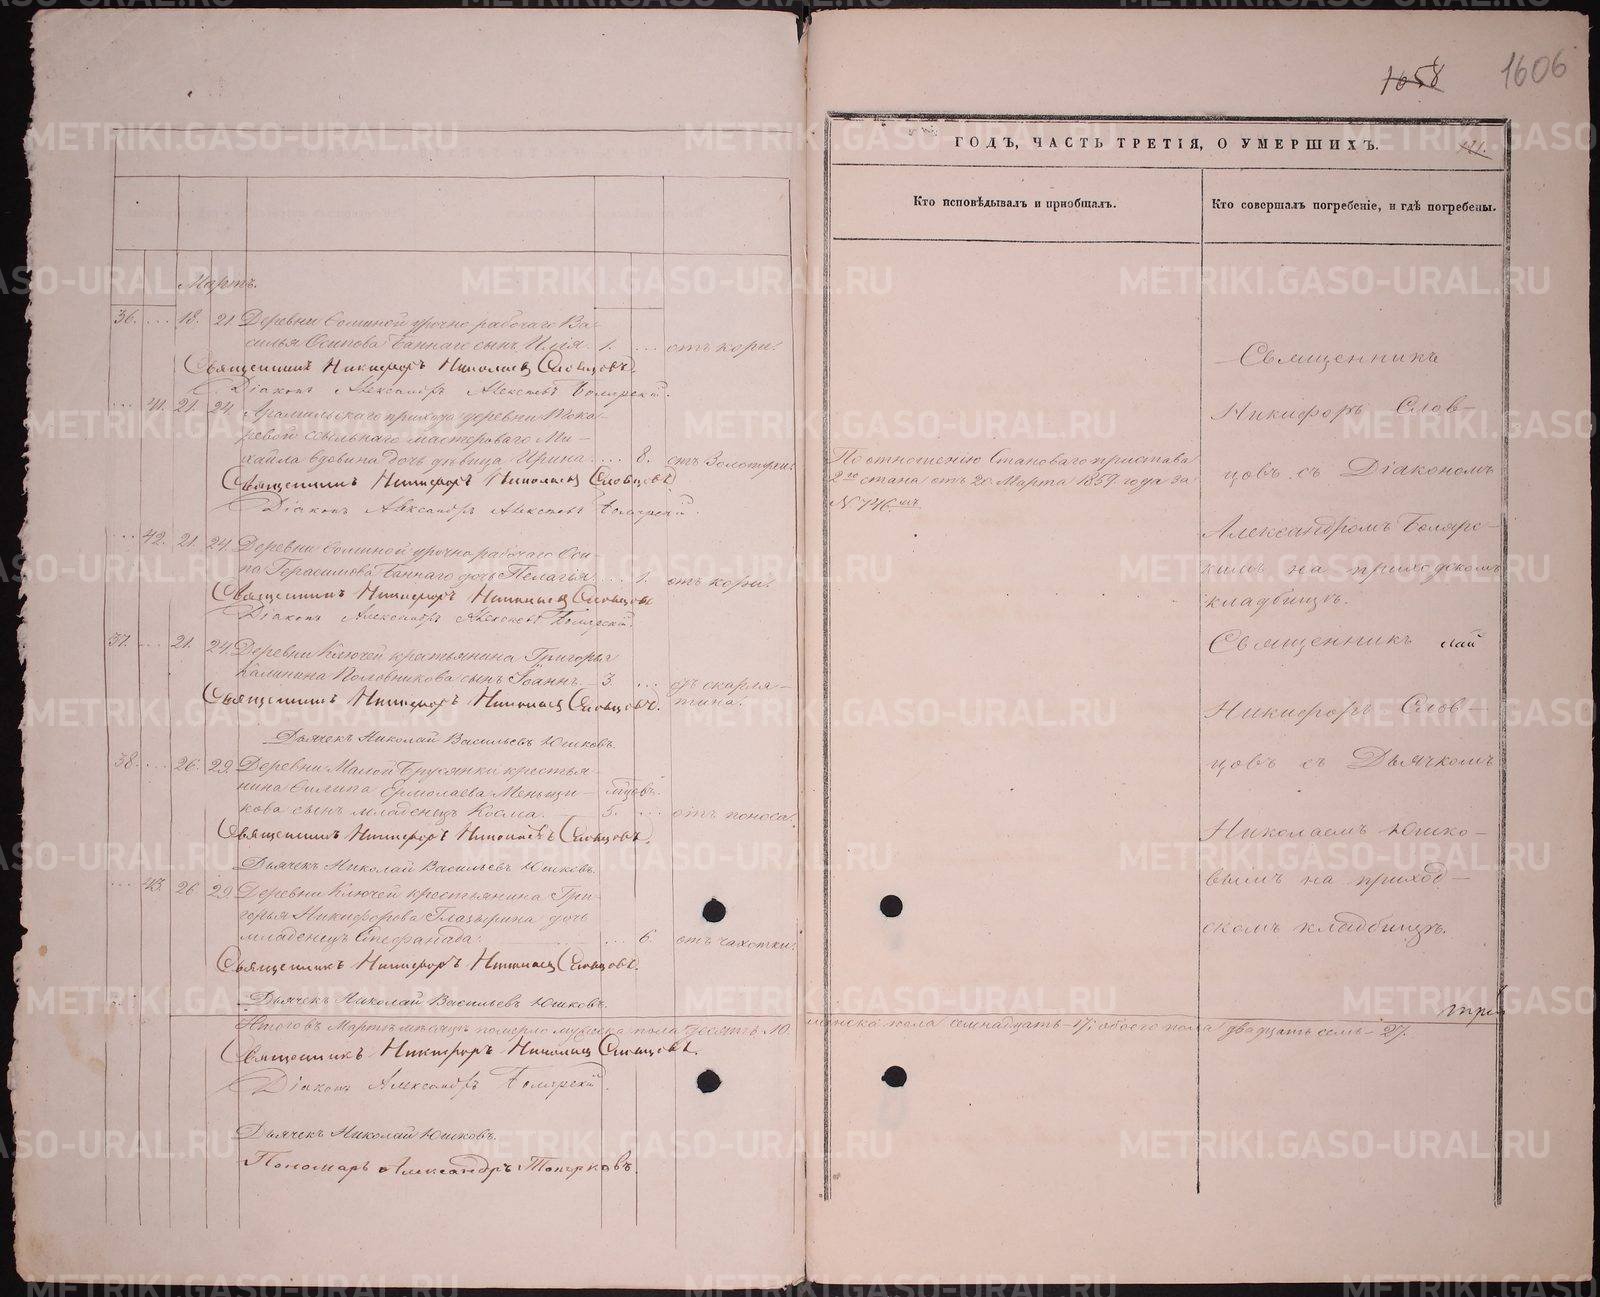 1658
1606
ГОДЪ, ЧАСТЬ ТРЕТІЯ, О УМЕРШИХЪ.
121.
Кто исповѣдывалъ и приобщалъ.
Кто совершалъ погребеніе, и гдѣ погребены.
Мартъ.
36. ... 18. 21. Деревни Соминой урочно рабочаго Ва-
силья Осипова Баннаго сынъ Илія. 1. ... отъ кори.
Священникъ Никифоръ Николаевъ Словцовъ.
Діаконъ Александръ Алексѣевъ Боярскій.
... 41. 21. 24. Арамильскаго прихода деревни Тока-
ревой ссыльнаго мастероваго Ми-
хайла вдовина дочь дѣвица Ирина. ... 8. отъ Золотухи.
Священникъ Никифоръ Николаевъ Словцовъ
Діаконъ Александръ Алексѣевъ Боярскій.
... 42. 21. 24. Деревни Соминой урочно рабочаго Оси-
па Герасимова Баннаго дочь Пелагія. ... 1. отъ кори.
Священникъ Никифоръ Николаевъ Словцовъ
Діаконъ Александръ Алексѣевъ Боярскій.
37. ... 21. 24. Деревни Ключей крестьянина Григорья
Калинина Половникова сынъ Іоаннъ. 3. ... отъ скарля-
тина.
Священникъ Никифоръ Николаевъ Словцовъ.
Дьячекъ Николай Васильевъ Юшковъ.
38. ... 26. 29. Деревни Малой Брусянки крестья-
нина Филипа Ермолаева Меньщи-
кова сынъ младенецъ Косма. 5. ... отъ поноса.
Священникъ Никифоръ Николаевъ Словцовъ.
Дьячекъ Николай Васильевъ Юшковъ.
... 43. 26. 29. Деревни Ключей крестьянина Гри-
горья Никифорова Глазырина дочь
младенецъ Стефанида. ... 6. отъ чахотки.
Священникъ Никифоръ Николаевъ Словцовъ.
Дьячекъ Николай Васильевъ Юшковъ.
Итого въ Мартѣ мѣсяцѣ померло мужеска пола десять 10. женска пола семнадцать 17; обоего пола двадцать семь 27.
Священникъ Никифоръ Николаевъ Словцовъ.
Діаконъ Александръ Боярскій.
Дьячекъ Николай Юшковъ.
Пономарь Александръ Топорковъ.
По отношенію Становаго пристава
2го стана отъ 20 Марта 1859 года за
№ 746.мъ
Священникъ
Никифоръ Слов-
цовъ съ Діакономъ
Александромъ Боярс-
кимъ на приходскомъ
кладбищѣ.
Священникъ
Никифоръ Слов-
цовъ съ Дьячкомъ
Николаемъ Юшко-
вымъ на приход-
скомъ кладбищѣ.
METRIKI.GASO-URAL.RU